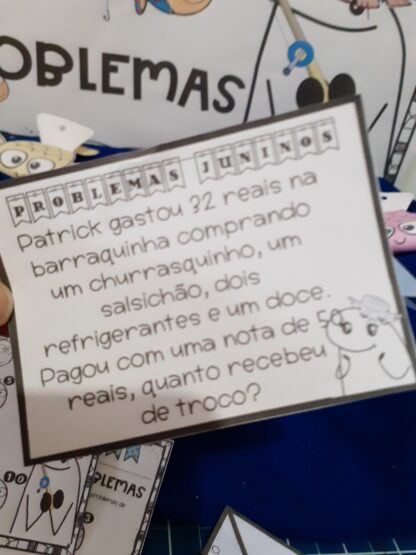 OBLEMAS
PROBLEMAS JUNINOS
Patrick gastou 32 reais na
barraquinha comprando
um churrasquinho, um
salsichão, dois
refrigerantes e um doce.
Pagou com uma nota de 50
reais, quanto recebeu
de troco?
LEMAS
problemas de
3
10